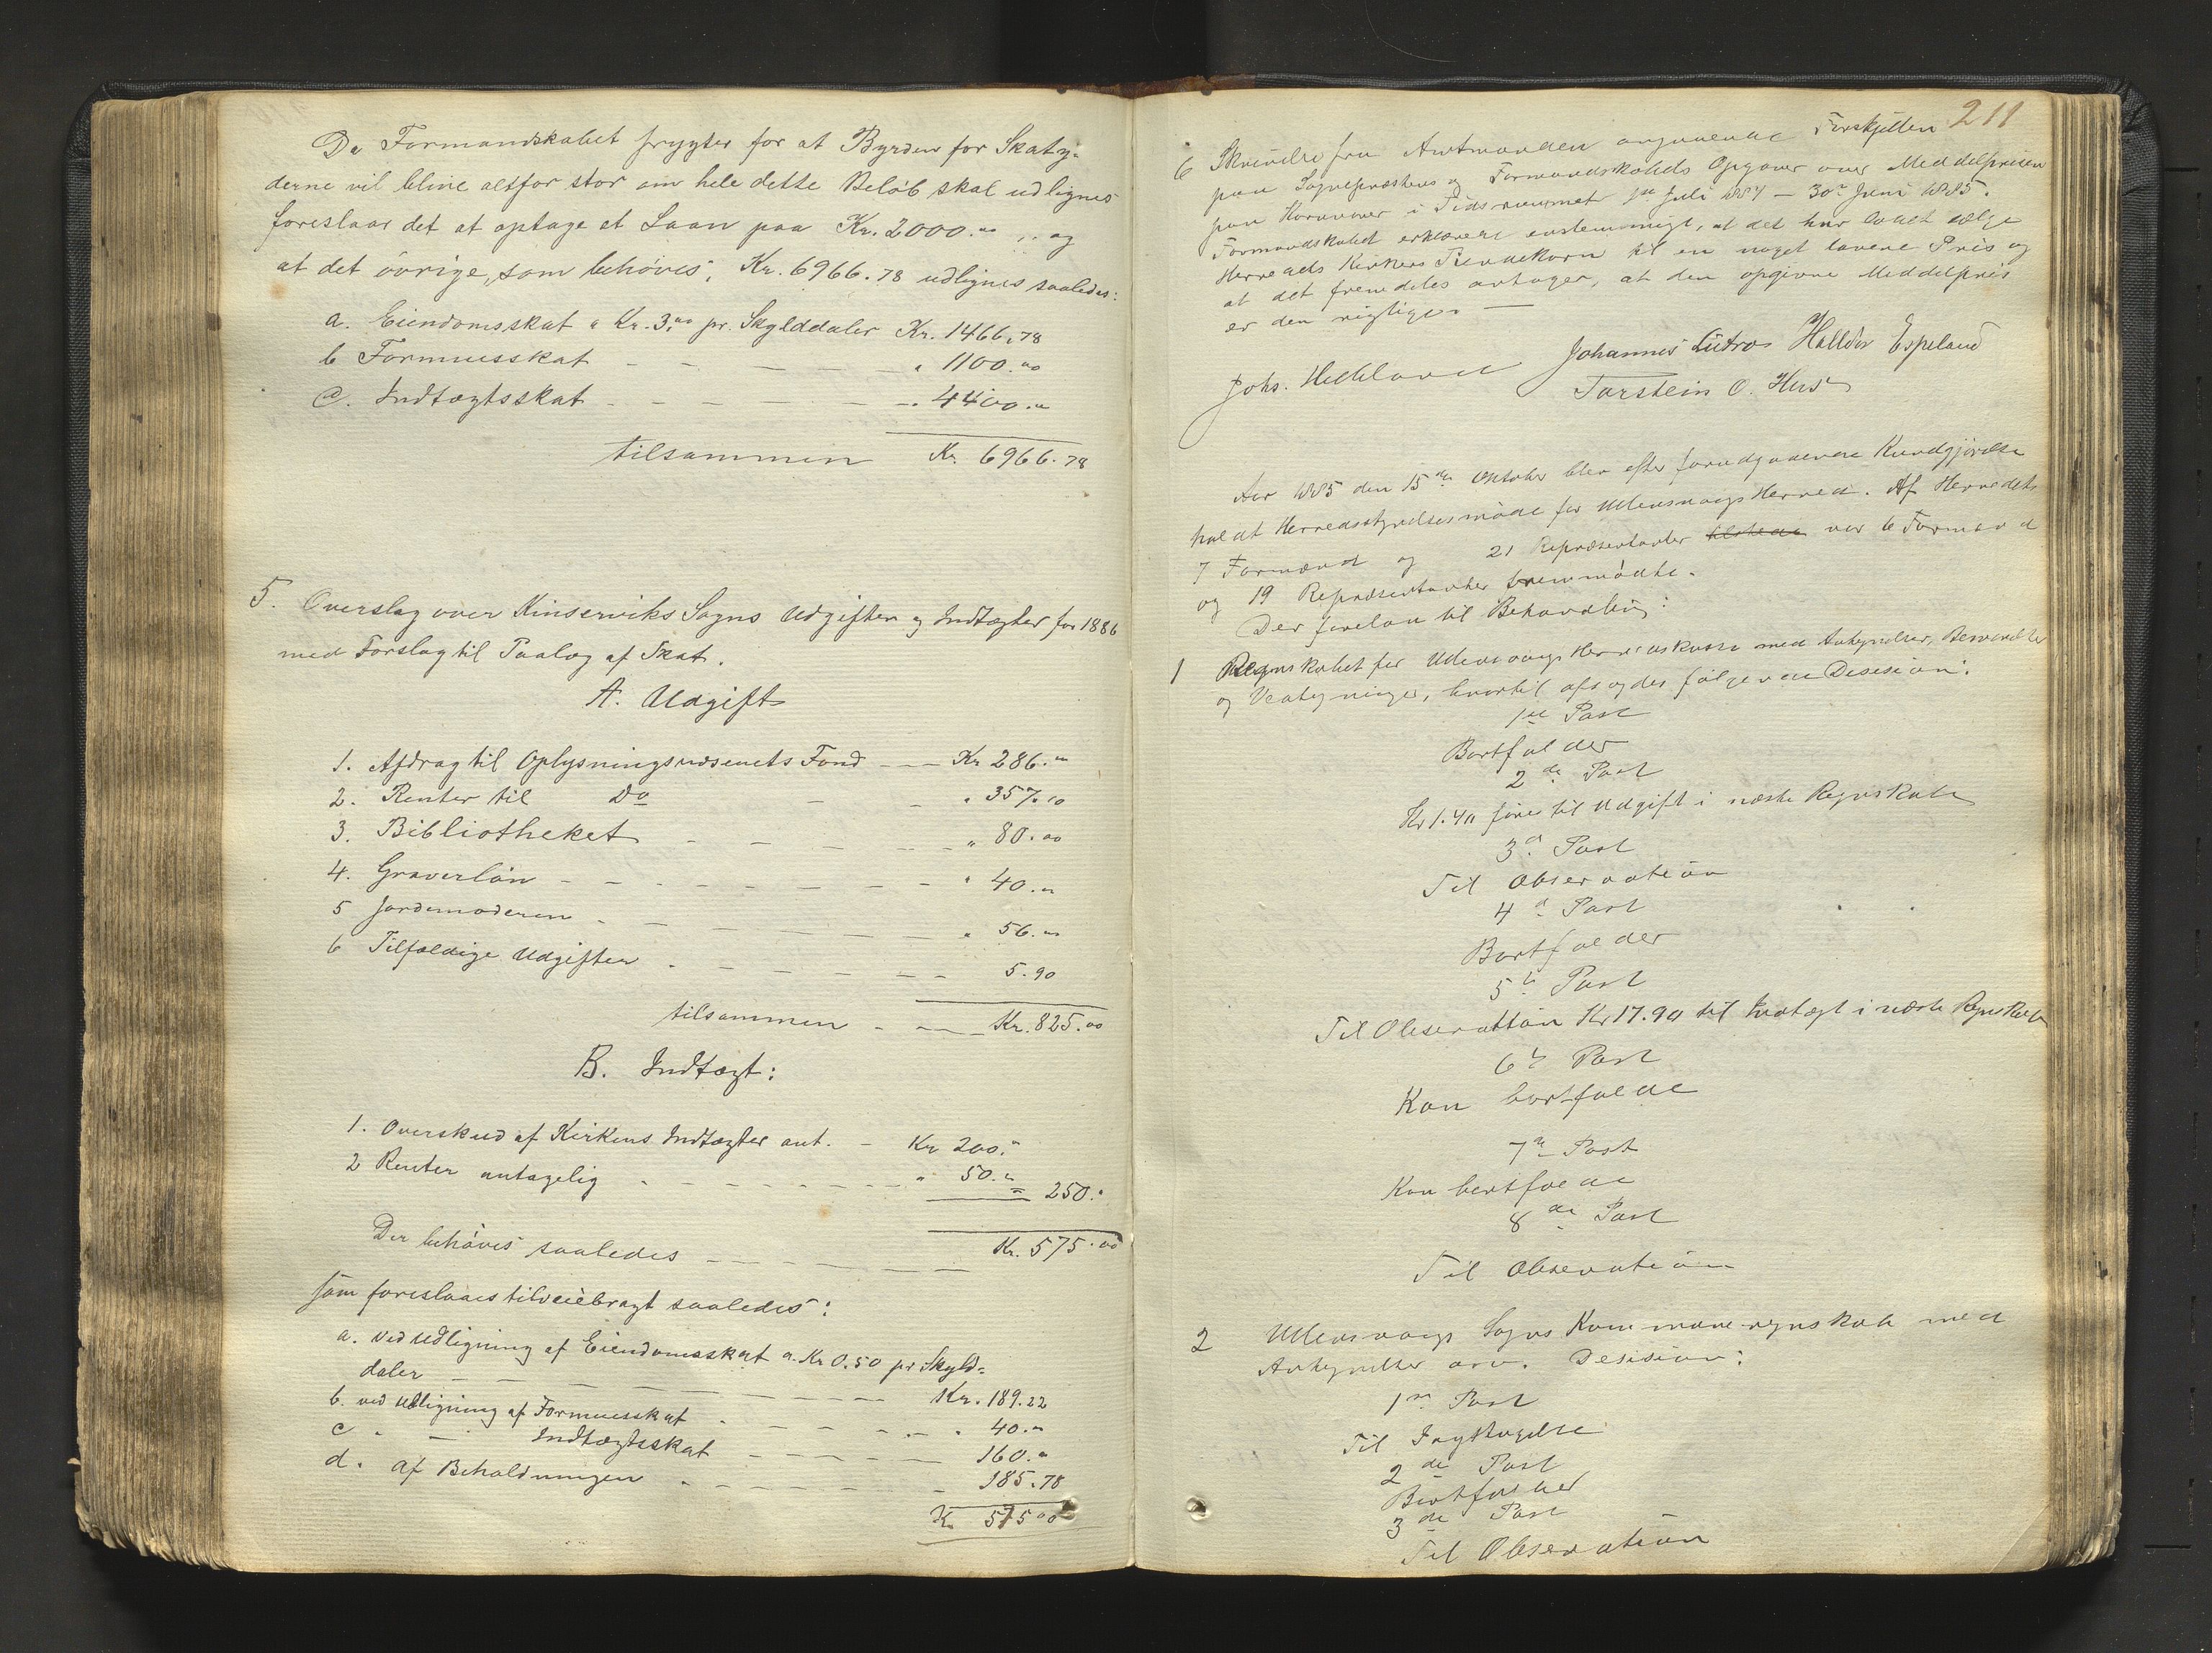 Da Formandskabet frygter for at Byrden for Skaty-
derne vil blive altfor stor om hele dette Beløb skal udlignes
foreslaar det at optage et Laan paa Kr. 2000.00 og
at det øvrige, som behøves, Kr. 6966.78 udlignes saaledes:
a. Eiendomsskat a Kr. 3,00 pr. Skylddaler Kr. 1466.78
b Formuesskat — — — — " 1100.00
c. Indtægtsskat — — — — " 4400.00
tilsammen Kr. 6966.78
5. Overslag over Kinserviks Sogns Udgifter og Indtægter for 1886
med Forslag til Paalæg af Skat.
A. Udgift
1. Afdrag til Oplysningsvæsenets Fond — — Kr 286.00
2. Renter til Do — — " 357.10
3. Bibliotheket — — — — " 80.00
4. Graverløn — — — — — " 40.00
5 Jordemoderen — — — — " 56.00
6 Tilfældige Udgifter — — — — 5.90
tilsammen — — Kr. 825.00
B. Indtægt:
1. Overskud af Kirkens Indtægter ant. — Kr 200.00
2 Renter antagelig — — — — " 50.00
= 250."
Der behøves saaledes — — — — Kr. 575.00
som foreslaaes tilveiebragt saaledes:
a. ved Udligning af Eiendomsskat a. Kr 0.50 pr Skyld-
daler — — — — — Kr. 189.22
b. ved Udligning af Formuesskat — — — " 40.00
c " — Indtægtsskat — — — 160.00
d. af Beholdningen — — — — 185.78
Kr 575.00
211
6 Skrivelse fra Amtmanden angaaende Forskjellen
paa Sognepræstens og Formandskabets Opgaver over Middelprisen
paa Kornvarer i Tidsrummet 1ste Juli 1884 — 30te Juni 1885.
Formandskabet erklærede enstemmigt, at det har ladet sælge
Herreds Kirkers Tiendekorn til en noget lavere Pris og
at det fremdeles antager, at den opgivne Middelpris
er den rigtige. —
Johs. Helleland Johannes Lutro Halldor Espeland
Torstein O. Hus
Aar 1885 den 15de Oktober blev efter forudgaaende Kundgjørelse
holdt Herredsstyrelsesmøde for Ullensvangs Herred. Af Herredets
7 Formænd og 21 Repræsentanter tilstede var 6 Formænd
og 19 Repræsentanter fremmødte.
Der forelaa til Behandling:
1 Regnskabet for Ullensvangs Herredskasse med Antegnelser, Besvarelse
og Vedtegninger, hvortil afsagdes følgende Desision:
1ste Post
Bortfalder
2de Post
Kr 1.40 føres til Udgift i næste Regnskab
3de Post
Til Observation
4de Post
Bortfalder
5te Post
Til Observation Kr 17.90 til Indtægt i næste Regnskab
6te Post
Kan bortfalde
7de Post
Kan bortfalde
8de Post
Til Observation
2 Ullensvangs Sogns Kommuneregnskab med
Antegnelser osv. Desision:
1ste Post
Til
2de Post
Bortfalder
3de Post
Til Observation